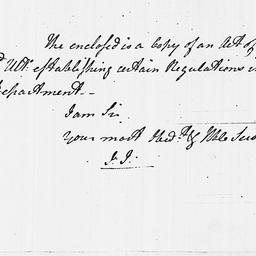 The enclosed is a copy of an Act of
Ult. establishing certain Regulations i
epartment—
I am Sir
your most Obed.t & Hble Ser
J. J.